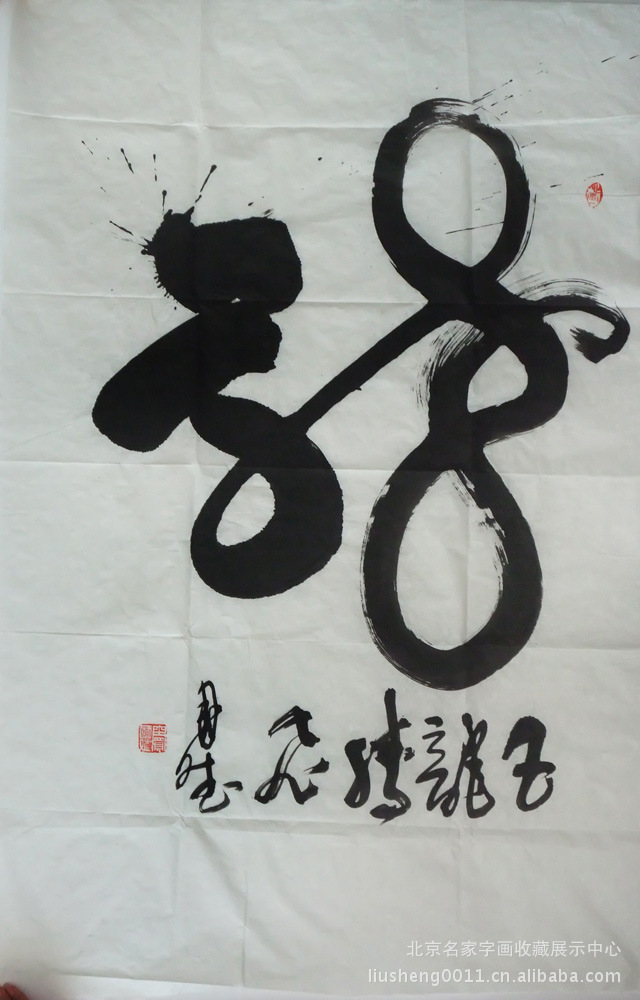 龍
巨龍騰飛
北京名家字画收藏展示中心
liusheng0011.cn.alibaba.com